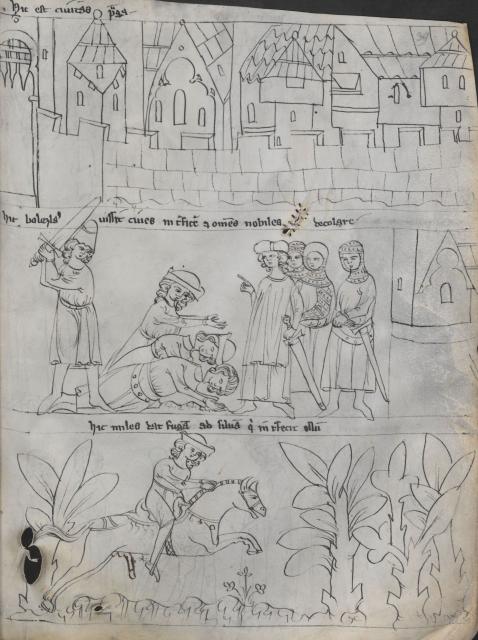 hic est ciuitas p̄ga
hic bolezla᷒ uissit ciues int̄fici ⁊ om̄es nobiles decolare
hic miles dat fugā ad siluā q̄ int̄fecit illū